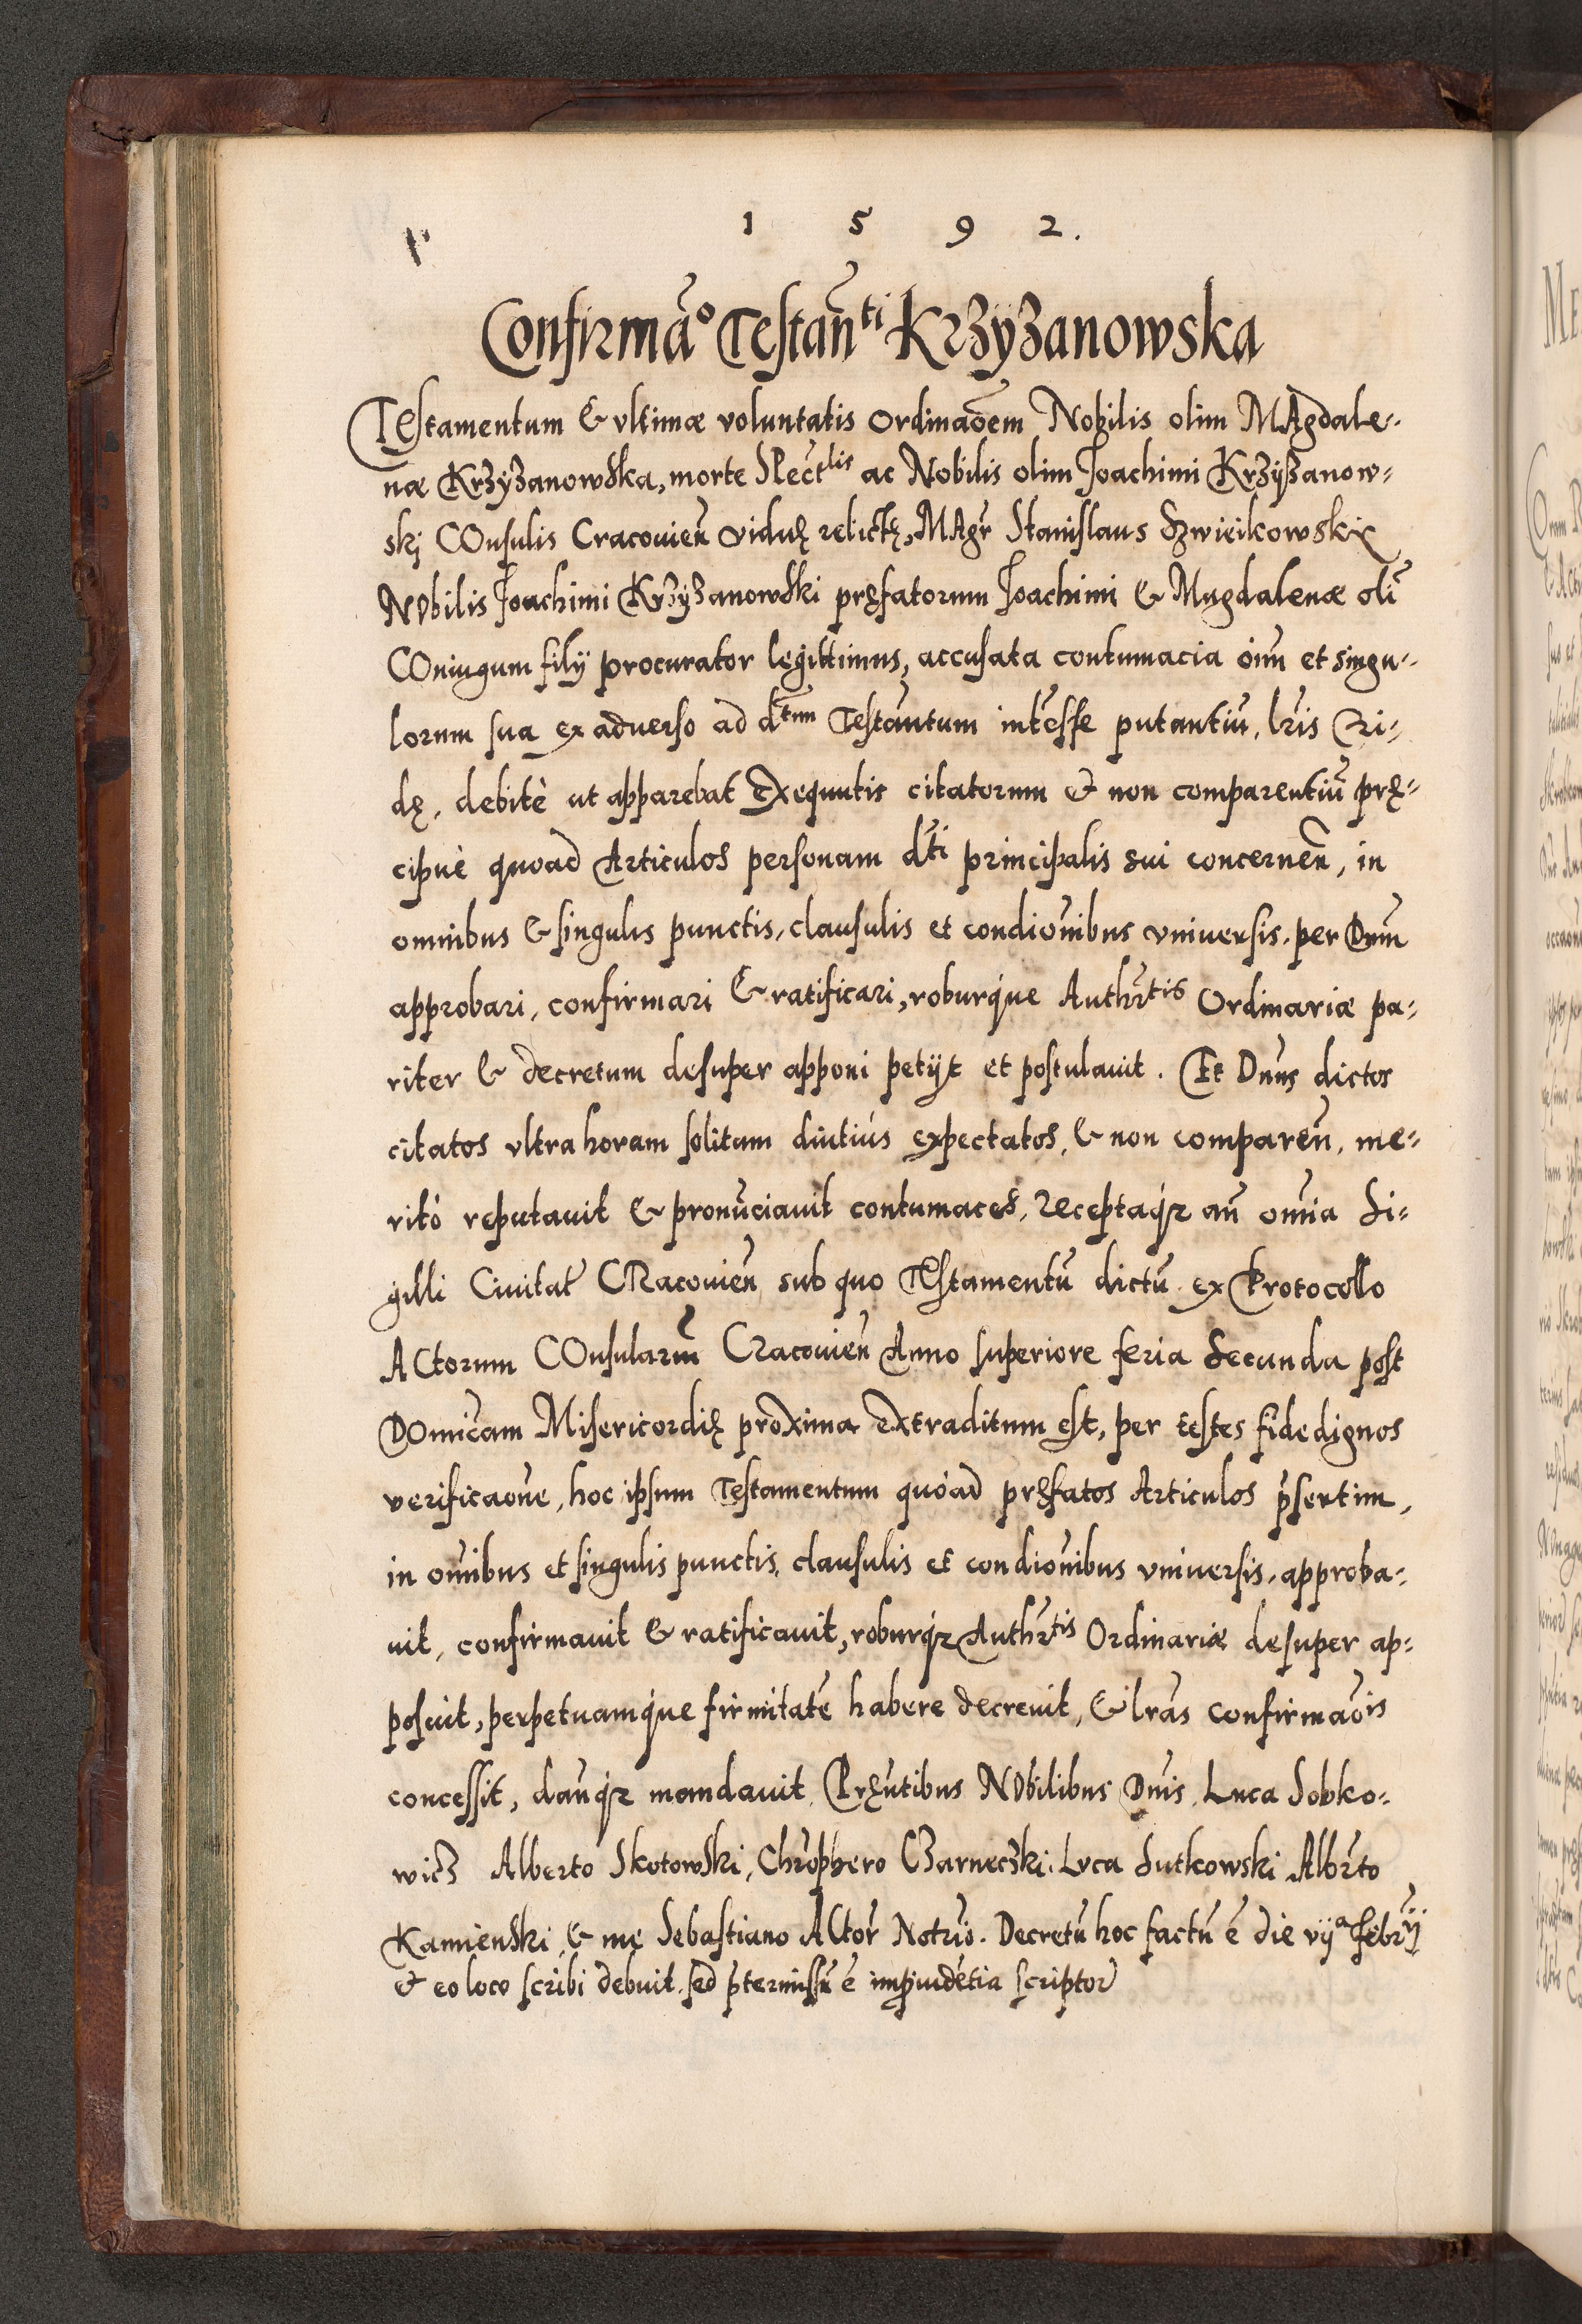 1 5 9 2.
Confirmao Testanti Krzyzanowska
Testamentum & vltimæ voluntatis ordinaoem Nobilis olim MAgdale-
næ Krzyzanowska, morte Slectlis ac Nobilis olim Joachimi Krzyzanow-
skj COnsulis Cracouien viduę relictę, MAgr Stanislaus Szwieikowski
NObilis Joachimi Krzyzanowski pręfatorum Joachimi & Magdalenæ oli
COniugum filij procurator legittimus, accusata contumacia oim et singu-
lorum sua ex aduerso ad dtum Testantum intesse putantiu, lris Ri-
dę, debitè ut apparebat exequutis citatorum & non comparentiu prę-
cipuè quoad Articulos personam dti principalis sui concernen, in
omnibus & singulis punctis, clausulis et condionibus vniuersis, per Dnm
approbari, confirmari & ratificari, roburque Authrtis Ordinariæ pa-
riter & decretum desuper apponi petijt et postulauit. Et Dnus dictos
citatos vltra horam solitam diutiús expectatos, & non comparen, me-
ritò reputauit & pronuciauit contumaces, receptaqz an omnia Si-
gilli Ciuitat CRacouien sub quo TEstamentu dictu ex Protocollo
ACtorum COnsularm Cracouien Anno superiore feria secunda post
DOmicam Misericordię proxima extraditum est, per testes fide dignos
verificaone, hoc ipsum Testamentum quoad pręfatos Articulos psertim,
in omnibus et singulis punctis, clausulis et condionibus vniuersis, approba-
uit, confirmauit & ratificauit, roburqz Authrtis Ordinariæ desuper ap-
posuit, perpetuamque firmitate habere decreuit, & lras confirmaois
concessit, dauqz mandauit. Pręntibus NObilibus Dnis, Luca Sobko-
wicz Alberto Skotowski, Chrophero Czarneczki, Luca Sutkowski Albrto
Kamienski, & me Sebastiano ACtor Notrio. Decretu hoc factu e die vija Febrij
& eo loco scribi debuit, sed ptermissu e impuidetia scriptor